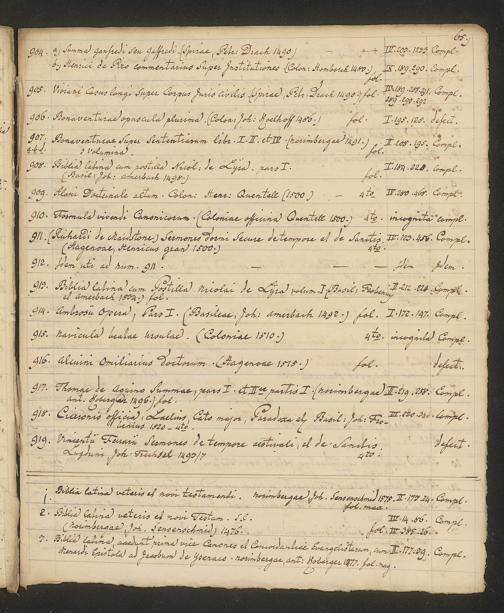 65.
904. a) Summa ganfredi seu gaffredi (Spirae, Petr: Drach 1490) III. 209. 1233. Compl.
b) Henrici de Piro commentarius Super Institutiones (Colon: 1480) fol. 189. 290. Compl.
905. Viviani Casus longi Super Corpus Juris civilis (Spirae, Petr: Drach 1490) fol. Compl.
906. Bonaventurae opuscula plurima. (Colon: Joh: Koelhoff 1486.) fol. I. 195. 128. defect.
907. Bonaventurae Super Sententiarum libr. I. II. et IV. (norimbergae 1491.) I. 108. 195. Compl.
2 volumina. fol.
908. Biblia latina cum postilla Nicol: de Lÿra, pars I. I. 184. Compl.
(Basil: Joh: amerbach 1498.) fol.
909. Alani Doctrinale altum. Colon: Henr: Quentell (1500.) 4to III. 280. 468. Compl.
910. Formula vivendi Canonicorum. (Coloniae officina Quentell 1500.) 4to. incognita Compl.
911. (Richardi de Maidstone) Sermones dormi Secure de tempore et de Sanctis. III. 123. 486. Compl.
(Hagenoae, Henricus gran 1500.) 4to.
912. Idem uti ad num. 911. — — — Idem Idem.
913. Biblia latina cum Postilla Nicolai de Lÿra volum I (Basil: Froben II. 212. Compl.
et amerbach 1504.) fol.
914. Ambrosii Opera, Pars I. (Basileae, Joh: amerbach 1492.) fol. I. 172. 147. Compl.
915. navicula beatae ursulae. (Coloniae 1510.) 4to. incognita Compl.
916. Alcuini Omiliarius doctorum. (Hagenoae 1515.) fol. defect.
917. Thomae de Aquino Summae, pars I. et IIae partis I. (norimbergae) II. 219. Compl.
ant: Koberger 1496.) fol.
918. Ciceronis officia, Laelius, Cato major, Paradoxa etc. Basil: Joh: Fro- Compl.
benius 1520. 4to.
919. Vincentii Ferrarii Sermones de tempore aestivali, et de Sanctis. defect.
Lugduni, Joh: Trechsel 1490/7 4to.
1. Biblia latina veteris et novi testamenti. norimbergae (Joh. Sensenschmid) II. 170. 24. Compl.
fol. max.
2. Biblia latina veteris et novi Testam. III. 14. 86. Compl.
(norimbergae Joh: Sensenschmid) 1476. fol.
7. Biblia latina, accedunt primo vice Canones et Concordantiae Evangelistarum, cum II. 177. 29. Compl.
Menardi Epistola ad Jacobum de Ysenaco. norimbergae, ant: Koberger 1477. fol. mag.